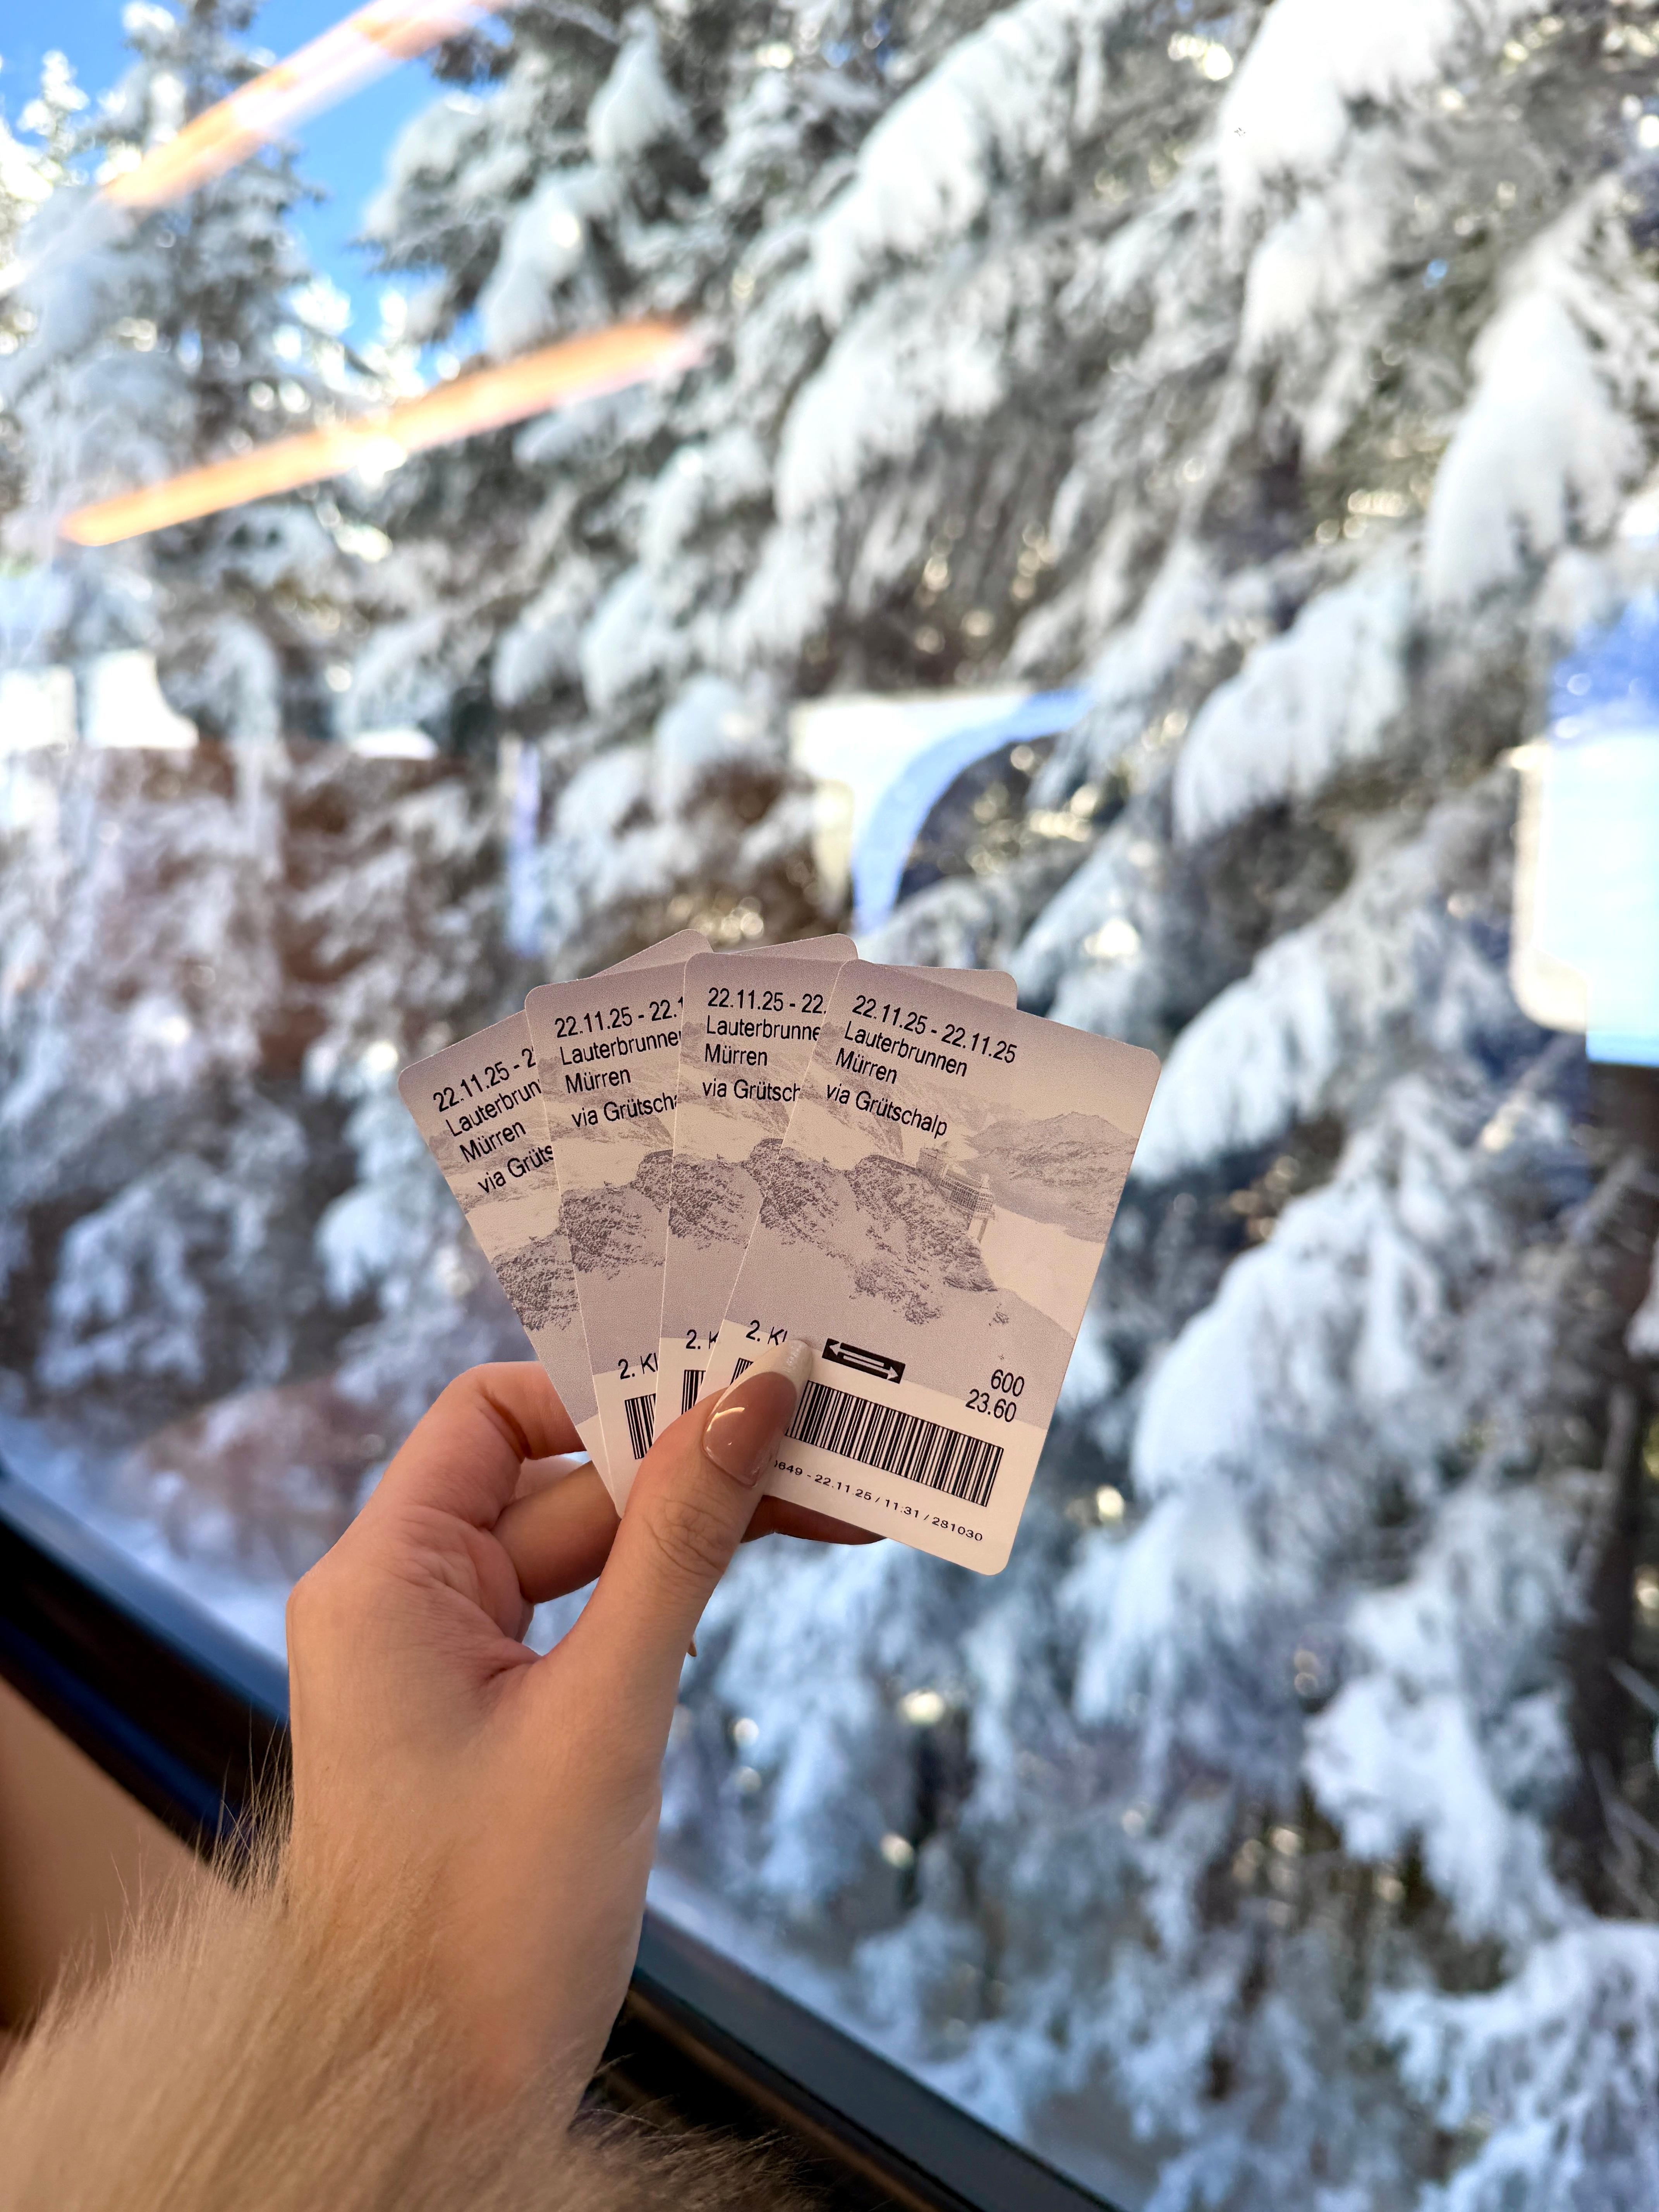 22.11.25 - 2
Lauterbrun
Mürren
via Grüts
22.11.25 - 22.1
Lauterbrunne
Mürren
via Grütsch
2. Kl
22.11.25 - 22.
Lauterbrunne
Mürren
via Grütsch
2. K
22.11.25 - 22.11.25
Lauterbrunnen
Mürren
via Grütschalp
2. Kl
600
23.60
0649 - 22.11.25 / 11:31 / 281030